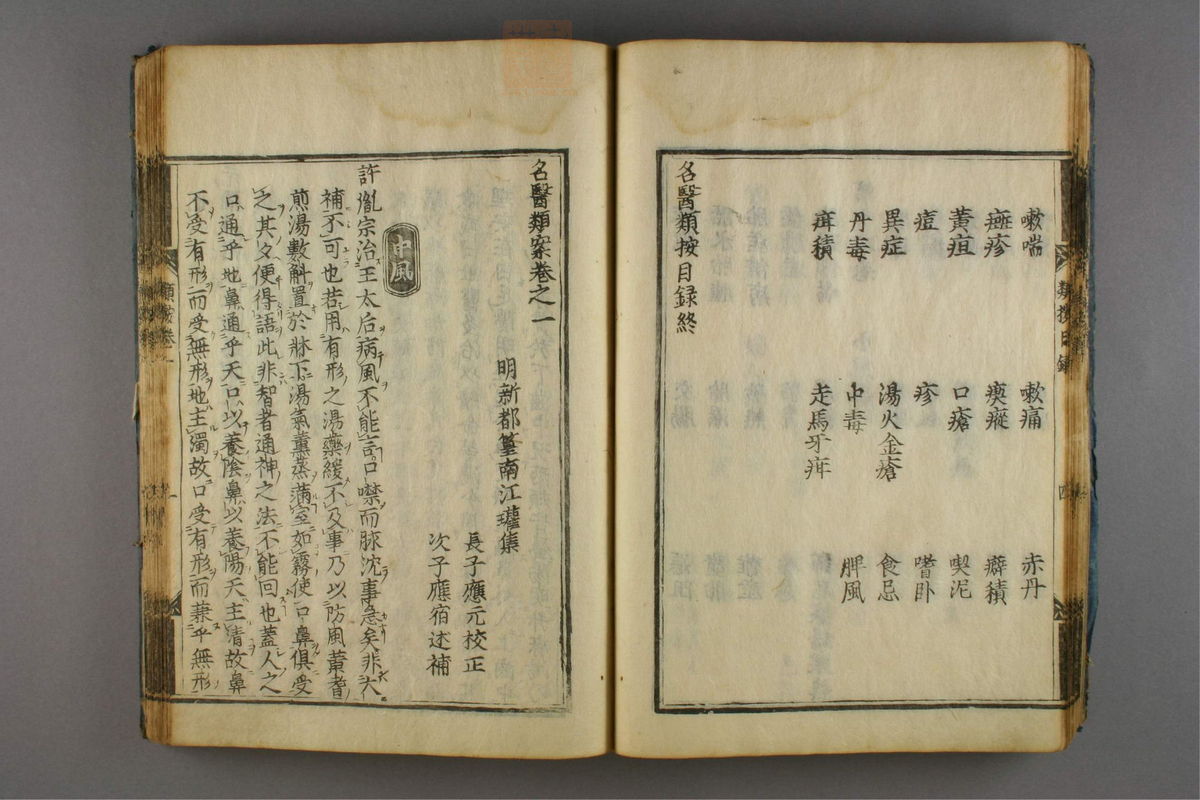 嗽喘 嗽痛 赤丹
痘疹 瘈瘲 癖積
黃疸 口瘡 喫泥
痘 疹 嗜卧
異症 湯火金瘡 食忌
丹毒 中毒 脾風
疳積 走馬牙疳
名醫類按目録終
名醫類案卷之一
明新都篁南江瓘集
長子應元校正
次子應宿述補
中風
許胤宗治王太后病風不能言口噤而脉沈事急矣非大
補不可也若用有形之湯藥緩不及事乃以防風黃耆
煎湯數斛置於牀下湯氣薰蒸滿室如霧使口鼻俱受
之其夕便得語此非智者通神之法不能回也蓋人之
口通乎地鼻通乎天口以養陰鼻以養陽天主清故鼻
不受有形而受無形地主濁故口受有形而兼乎無形